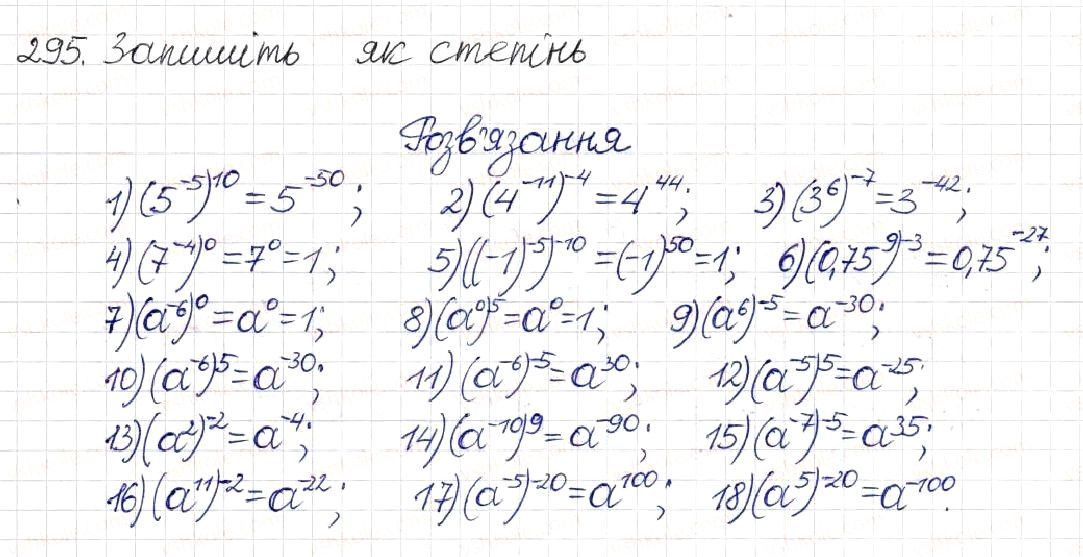 295. Запишіть як степінь
Розв'язання
1) (5⁻⁵)¹⁰ = 5⁻⁵⁰; 2) (4⁻¹¹)⁻⁴ = 4⁴⁴; 3) (3⁶)⁻⁷ = 3⁻⁴²;
4) (7⁻⁴)⁰ = 7⁰ = 1; 5) ((-1)⁻⁵)⁻¹⁰ = (-1)⁵⁰ = 1; 6) (0,75⁹)⁻³ = 0,75⁻²⁷;
7) (a⁻⁶)⁰ = a⁰ = 1; 8) (a⁰)⁵ = a⁰ = 1; 9) (a⁶)⁻⁵ = a⁻³⁰;
10) (a⁻⁶)⁵ = a⁻³⁰; 11) (a⁻⁶)⁻⁵ = a³⁰; 12) (a⁻⁵)⁵ = a⁻²⁵;
13) (a²)⁻² = a⁻⁴; 14) (a⁻¹⁰)⁹ = a⁻⁹⁰; 15) (a⁻⁷)⁻⁵ = a³⁵;
16) (a¹¹)⁻² = a⁻²²; 17) (a⁻⁵)⁻²⁰ = a¹⁰⁰; 18) (a⁵)⁻²⁰ = a⁻¹⁰⁰.